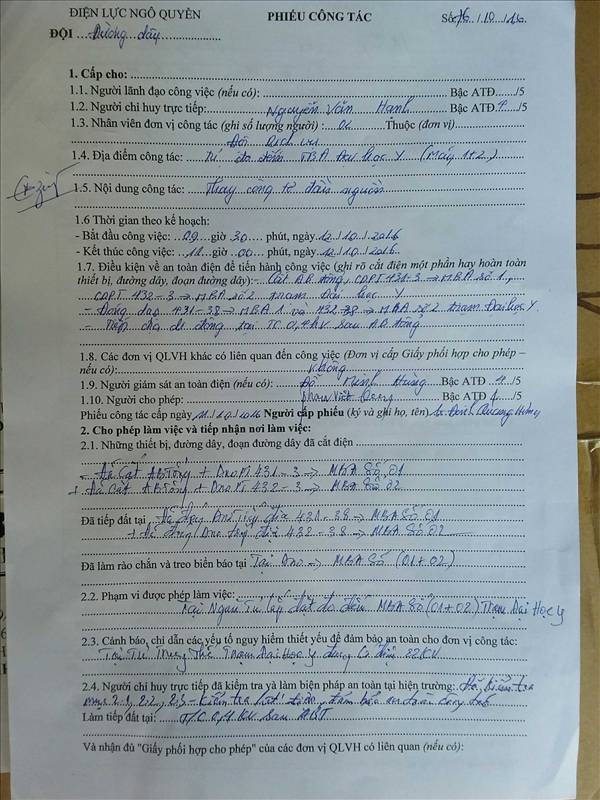 ĐIỆN LỰC NGÔ QUYỀN
PHIẾU CÔNG TÁC
Số 76 /10 /
ĐỘI ...Đường dây
1. Cấp cho:
1.1. Người lãnh đạo công việc (nếu có): Bậc ATĐ....../5
1.2. Người chi huy trực tiếp: Nguyễn Văn Hanh Bậc ATĐ 4 /5
1.3. Nhân viên đơn vị công tác (ghi số lượng người) : 02 Thuộc (đơn vị)
Đội Dịch vụ
1.4. Địa điểm công tác: Tủ đo đếm TBA Đại học Y (Máy 1+2)
1.5. Nội dung công tác: Thay công tơ đầu nguồn
1.6 Thời gian theo kế hoạch:
- Bắt đầu công việc: 09 giờ 30 phút, ngày 12/10/2016
- Kết thúc công việc: 11 giờ 00 phút, ngày 12/10/2016
1.7. Điều kiện về an toàn điện để tiến hành công việc (ghi rõ cắt điện một phần hay hoàn toàn
thiết bị, đường dây, đoạn đường dây): - Cắt AB tổng, CDPT 431-3 → MBA số 1,
CDPT 432-3 → MBA số 2 trạm Đại học Y
- Đóng dao 431-38 → MBA 1 và 432-38 → MBA số 2 trạm Đại học Y
- Tiếp địa di động tại TC 0,4kV sau AB tổng
1.8. Các đơn vị QLVH khác có liên quan đến công việc (Đơn vị cấp Giấy phối hợp cho phép –
nếu có): Không
1.9. Người giám sát an toàn điện (nếu có): Đỗ Mạnh Hùng Bậc ATĐ 4 /5
1.10. Người cho phép: Phan Việt Bậc ATĐ 4 /5
Phiếu công tác cấp ngày 11/10/2016 Người cấp phiếu (ký và ghi họ, tên)
2. Cho phép làm việc và tiếp nhận nơi làm việc:
2.1. Những thiết bị, đường dây, đoạn đường dây đã cắt điện
+ Đã cắt AB tổng + Dao PT 431-3 → MBA Số 01
+ Đã cắt AB tổng + Dao PT 432-3 → MBA Số 02
Đã tiếp đất tại + Đã đóng Dao tiếp địa 431-38 → MBA Số 01
+ Đã đóng Dao tiếp địa 432-38 → MBA Số 02
Đã làm rào chắn và treo biển báo tại Tại Dao → MBA Số (01+02)
2.2. Phạm vi được phép làm việc:
Tại Ngăn Tủ lắp đặt đo đếm MBA Số (01+02) Trạm Đại Học Y
2.3. Cảnh báo, chỉ dẫn các yếu tố nguy hiểm thiết yếu để đảm bảo an toàn cho đơn vị công tác:
Tại Tủ Trung Thế Trạm Đại Học Y đang có điện 22KV
2.4. Người chỉ huy trực tiếp đã kiểm tra và làm biện pháp an toàn tại hiện trường: Đã kiểm tra
mục 2.1, 2.2, 2.3 - kiểm tra điện, đảm bảo an toàn
Làm tiếp đất tại: T/C 0,4 KV sau ABT
Và nhận đủ "Giấy phối hợp cho phép" của các đơn vị QLVH có liên quan (nếu có):